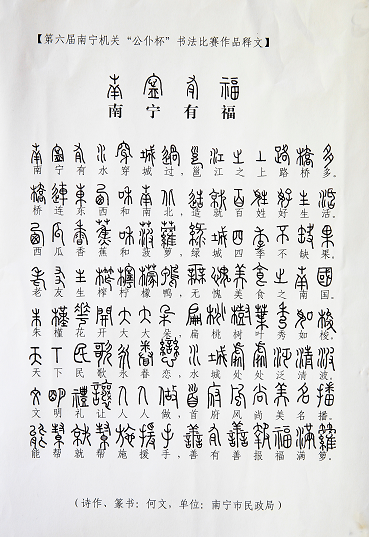 【第六届南宁机关“公仆杯”书法比赛作品释文】
南宁有福
南宁有水穿城过,邕江之上路桥多。
桥连东西和南北,造就百姓好生活。
西瓜香蕉和菠萝,绿城四季不缺果。
老友生榨柠檬鸭,无愧美食之南国。
朱槿花开大大朵,扁桃树叶秀如梭。
天下民歌永眷恋,水城处处泛清波。
文明礼让人人做,首府风尚美名播。
能帮就帮施援手,善有善报福满箩。
(诗作、篆书:何文,单位:南宁市民政局)